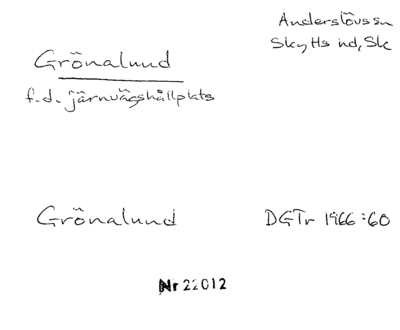 Anderslövs sn
Skytts hd, Sk
Grönalund
f.d. järnvägshållplats
Grönalund
DGTr 1966:60
Nr 22012